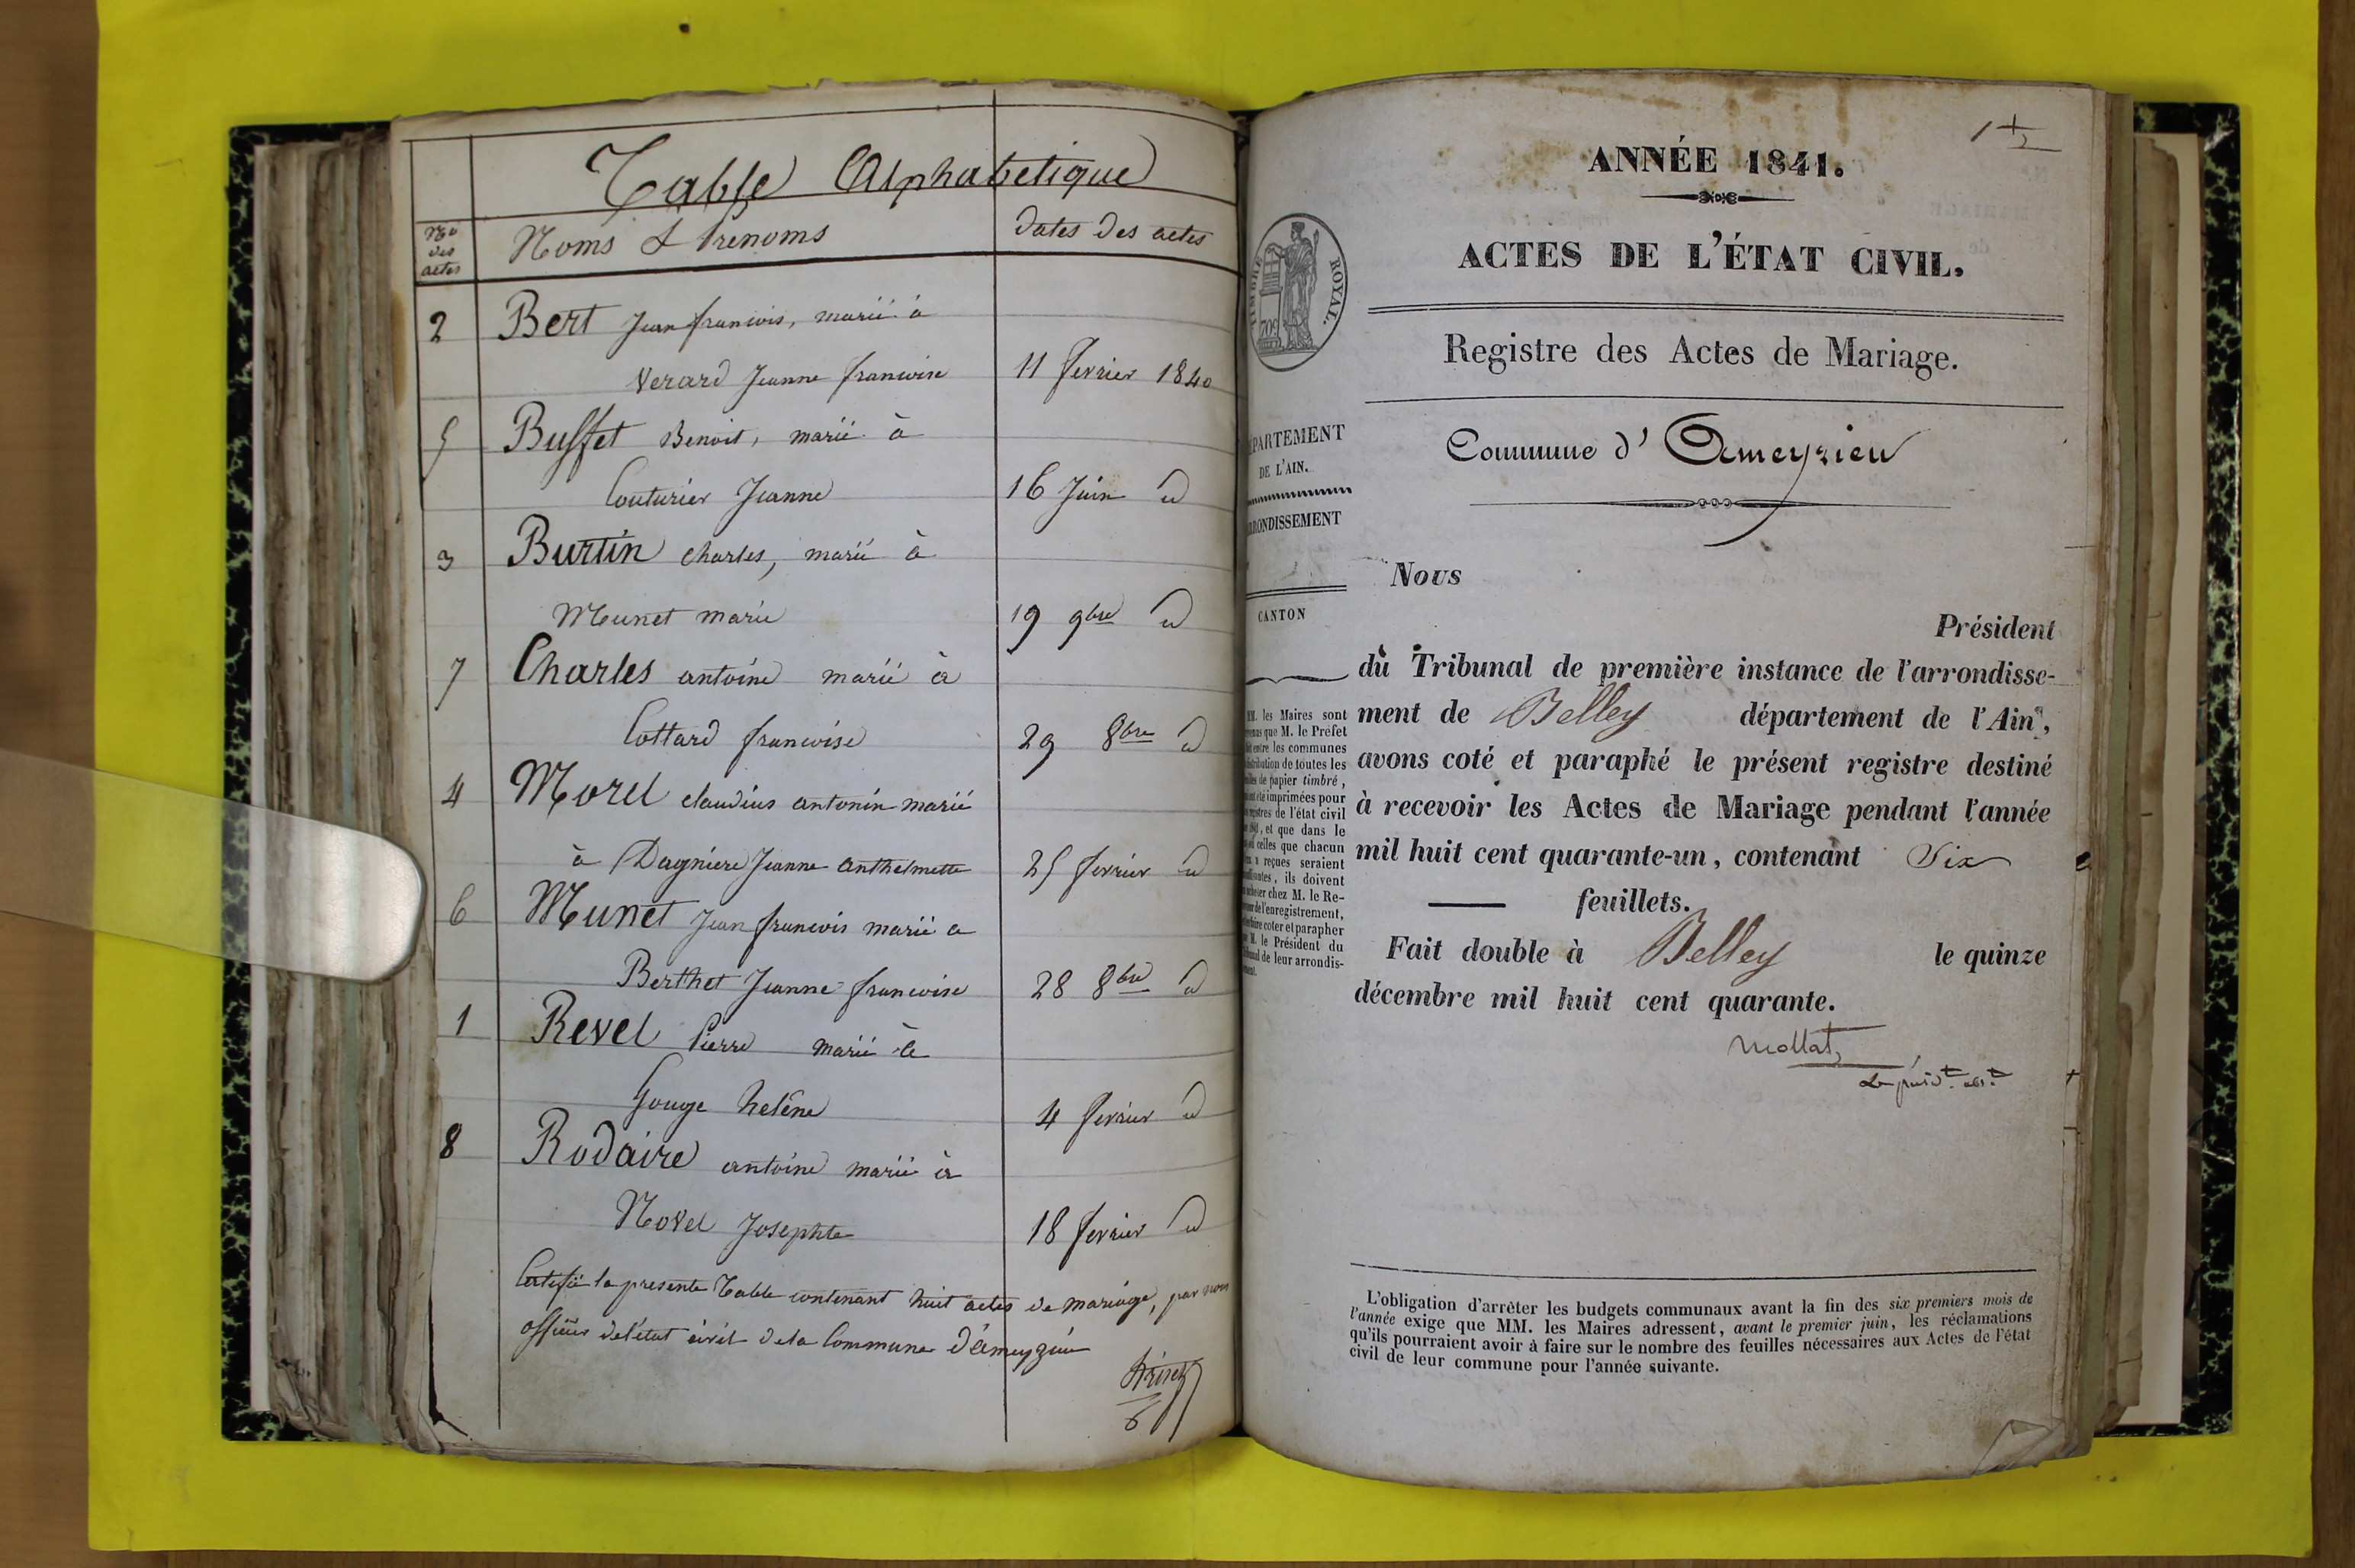 Table Alphabetique
Nos des actes
Noms & Prenoms
dates des actes
2 Bert Jean françois, marié à
Verard Jeanne françoise 11 fevrier 1840
5 Buffet Benoit, marié à
Couturier Jeanne 16 Juin d
3 Burtin charles, marié à
Meunet marie 19 9bre d
7 Charles antoine marié à
Cottard francoise 29 8bre d
4 Morel claudius antonin marié
à Dagniere Jeanne anthelmette 25 fevrier d
6 Munet Jean francois marié a
Berthet Jeanne francoise 28 8bre d
1 Revel Pierre marié à
Gouge heléne 4 fevrier d
8 Rodaire antoine marié à
Novel Josephte 18 fevrier d
Certifié la presente Table contenant huit actes de mariage, par nous
officier de l'état civil de la Commune d'ameyzieu
1
ANNÉE 1841.
ACTES DE L'ÉTAT CIVIL.
TIMBRE ROYAL.
70c
Registre des Actes de Mariage.
Commune d' Ameyzieu
PARTEMENT
DE L'AIN.
RONDISSEMENT
CANTON
MM. les Maires sont
que M. le Préfet
entre les communes
de toutes les
de papier timbré,
été imprimées pour
de l'état civil
, et que dans le
celles que chacun
reçues seraient
, ils doivent
chez M. le Re-
de l'enregistrement,
coter et parapher
M. le Président du
de leur arrondis-
Nous
Président
du Tribunal de première instance de l'arrondisse-
ment de Belley département de l'Ain,
avons coté et paraphé le présent registre destiné
à recevoir les Actes de Mariage pendant l'année
mil huit cent quarante-un, contenant Six
feuillets.
Fait double à Belley le quinze
décembre mil huit cent quarante.
Mollat
L'obligation d'arrêter les budgets communaux avant la fin des six premiers mois de
l'année exige que MM. les Maires adressent, avant le premier juin, les réclamations
qu'ils pourraient avoir à faire sur le nombre des feuilles nécessaires aux Actes de l'état
civil de leur commune pour l'année suivante.